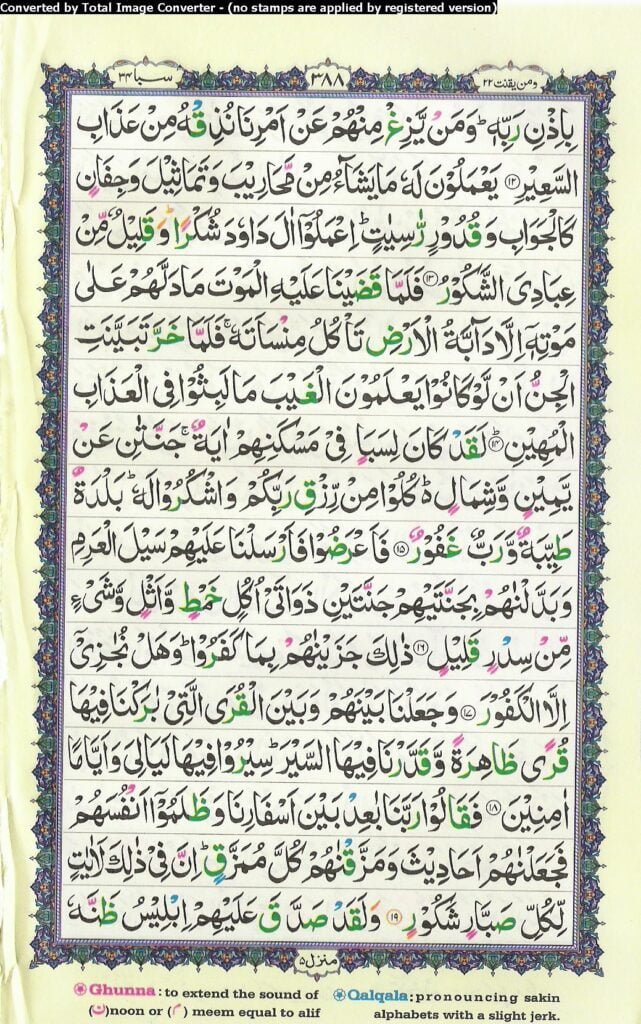 Converted by Total Image Converter - (no stamps are applied by registered version)
ومن یقنت ۲۲
۳۸۸
سبا ۳۴
بِاِذْنِ رَبِّهٖ ؕ وَمَنْ یَّزِغْ مِنْهُمْ عَنْ اَمْرِنَا نُذِقْهُ مِنْ عَذَابِ
السَّعِیْرِ ﴿۱۲﴾ یَعْمَلُوْنَ لَهٗ مَا یَشَآءُ مِنْ مَّحَارِیْبَ وَتَمَاثِیْلَ وَجِفَانٍ
كَالْجَوَابِ وَقُدُوْرٍ رّٰسِیٰتٍ ؕ اِعْمَلُوْۤا اٰلَ دَاوٗدَ شُكْرًا ؕ وَقَلِیْلٌ مِّنْ
عِبَادِیَ الشَّكُوْرُ ﴿۱۳﴾ فَلَمَّا قَضَیْنَا عَلَیْهِ الْمَوْتَ مَا دَلَّهُمْ عَلٰی
مَوْتِهٖۤ اِلَّا دَآبَّةُ الْاَرْضِ تَاْكُلُ مِنْسَاَتَهٗ ۚ فَلَمَّا خَرَّ تَبَیَّنَتِ
الْجِنُّ اَنْ لَّوْ كَانُوْا یَعْلَمُوْنَ الْغَیْبَ مَا لَبِثُوْا فِی الْعَذَابِ
الْمُهِیْنِ ﴿۱۴﴾ؕ لَقَدْ كَانَ لِسَبَاٍ فِیْ مَسْكَنِهِمْ اٰیَةٌ ۚ جَنَّتٰنِ عَنْ
یَّمِیْنٍ وَّشِمَالٍ ؕ۬ كُلُوْا مِنْ رِّزْقِ رَبِّكُمْ وَاشْكُرُوْا لَهٗ ؕ بَلْدَةٌ
طَیِّبَةٌ وَّرَبٌّ غَفُوْرٌ ﴿۱۵﴾ فَاَعْرَضُوْا فَاَرْسَلْنَا عَلَیْهِمْ سَیْلَ الْعَرِمِ
وَبَدَّلْنٰهُمْ بِجَنَّتَیْهِمْ جَنَّتَیْنِ ذَوَاتَیْ اُكُلٍ خَمْطٍ وَّاَثْلٍ وَّشَیْءٍ
مِّنْ سِدْرٍ قَلِیْلٍ ﴿۱۶﴾ ذٰلِكَ جَزَیْنٰهُمْ بِمَا كَفَرُوْا ؕ وَهَلْ نُجٰزِیْۤ
اِلَّا الْكَفُوْرَ ﴿۱۷﴾ وَجَعَلْنَا بَیْنَهُمْ وَبَیْنَ الْقُرَی الَّتِیْ بٰرَكْنَا فِیْهَا
قُرًی ظَاهِرَةً وَّقَدَّرْنَا فِیْهَا السَّیْرَ ؕ سِیْرُوْا فِیْهَا لَیَالِیَ وَاَیَّامًا
اٰمِنِیْنَ ﴿۱۸﴾ فَقَالُوْا رَبَّنَا بٰعِدْ بَیْنَ اَسْفَارِنَا وَظَلَمُوْۤا اَنْفُسَهُمْ
فَجَعَلْنٰهُمْ اَحَادِیْثَ وَمَزَّقْنٰهُمْ كُلَّ مُمَزَّقٍ ؕ اِنَّ فِیْ ذٰلِكَ لَاٰیٰتٍ
لِّكُلِّ صَبَّارٍ شَكُوْرٍ ﴿۱۹﴾ وَلَقَدْ صَدَّقَ عَلَیْهِمْ اِبْلِیْسُ ظَنَّهٗ
منزل ۵
Ghunna: to extend the sound of
(ن)noon or (م) meem equal to alif
Qalqala: pronouncing sakin
alphabets with a slight jerk.